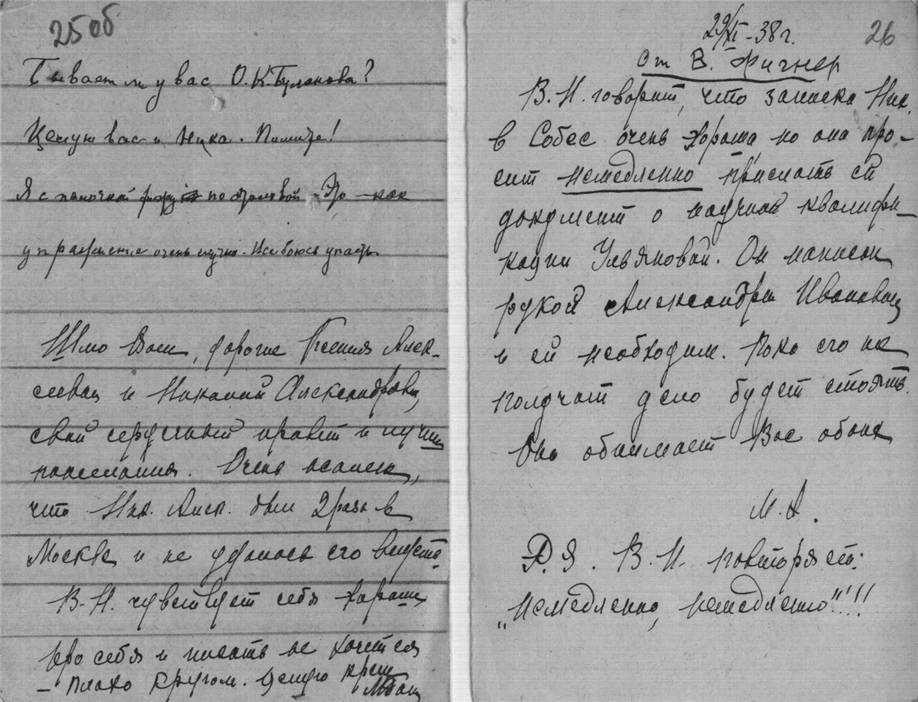 25 об
Бывает ли у вас О.К. Буланова?
Целую вас и Ника. Пишите!
Я с палочкой по столовой. Это — как
упражнение очень скучно. Все боюсь упасть.
Шлю Вам, дорогие Ксения Алек-
сеевна и Николай Александрович,
свой сердечный привет и лучшие
пожелания. Очень жалею,
что Ник. Алек. был 2 раза в
Москве и не удалось его видеть.
В.Н. чувствует себя хорошо
Про себя и писать не хочется
— плохо кругом. Целую крепко
26
29/XI-38 г.
От В. Фигнер
В.Н. говорит, что записка Ник.
в Собес очень хороша но она про-
сит немедленно прислать ей
документ о научной квалифи-
кации Ульяновой. Он написан
рукой Александры Ивановны
и ей необходим. Пока его не
получат дело будет стоять.
Она обнимает Вас обоих
М.А.
Р.Я. В.Н. повторяет:
„Немедленно, немедленно"!!!